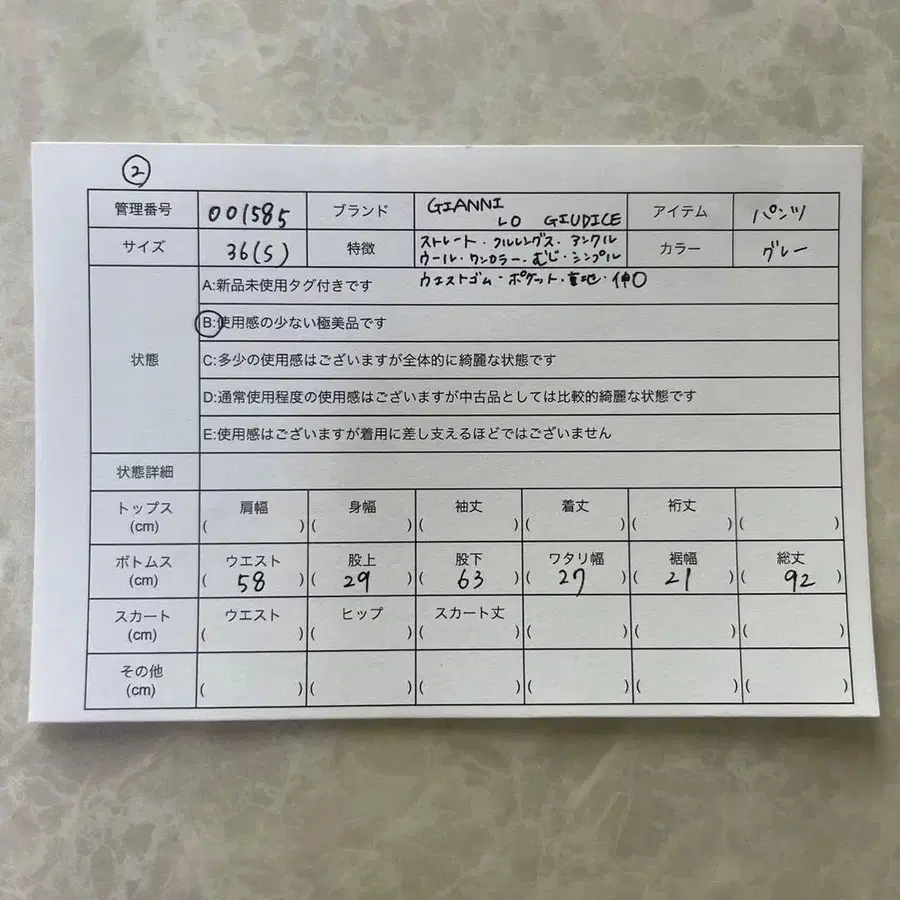 ②
管理番号 001585 ブランド GIANNI LO GIUDICE アイテム パンツ
サイズ 36(S) 特徴 ストレート・フルレングス・アンクル カラー グレー
ウール・ワンカラー・むじ・シンプル
ウエストゴム・ポケット・裏地・伸〇
状態
A:新品未使用タグ付きです
B:使用感の少ない極美品です
C:多少の使用感はございますが全体的に綺麗な状態です
D:通常使用程度の使用感はございますが中古品としては比較的綺麗な状態です
E:使用感はございますが着用に差し支えるほどではございません
状態詳細
トップス 肩幅 身幅 袖丈 着丈 裄丈
(cm) ( ) ( ) ( ) ( ) ( ) ( )
ボトムス ウエスト 股上 股下 ワタリ幅 裾幅 総丈
(cm) (58) (29) (63) (27) (21) (92)
スカート ウエスト ヒップ スカート丈
(cm) ( ) ( ) ( ) ( ) ( ) ( )
その他
(cm) ( ) ( ) ( ) ( ) ( ) ( )